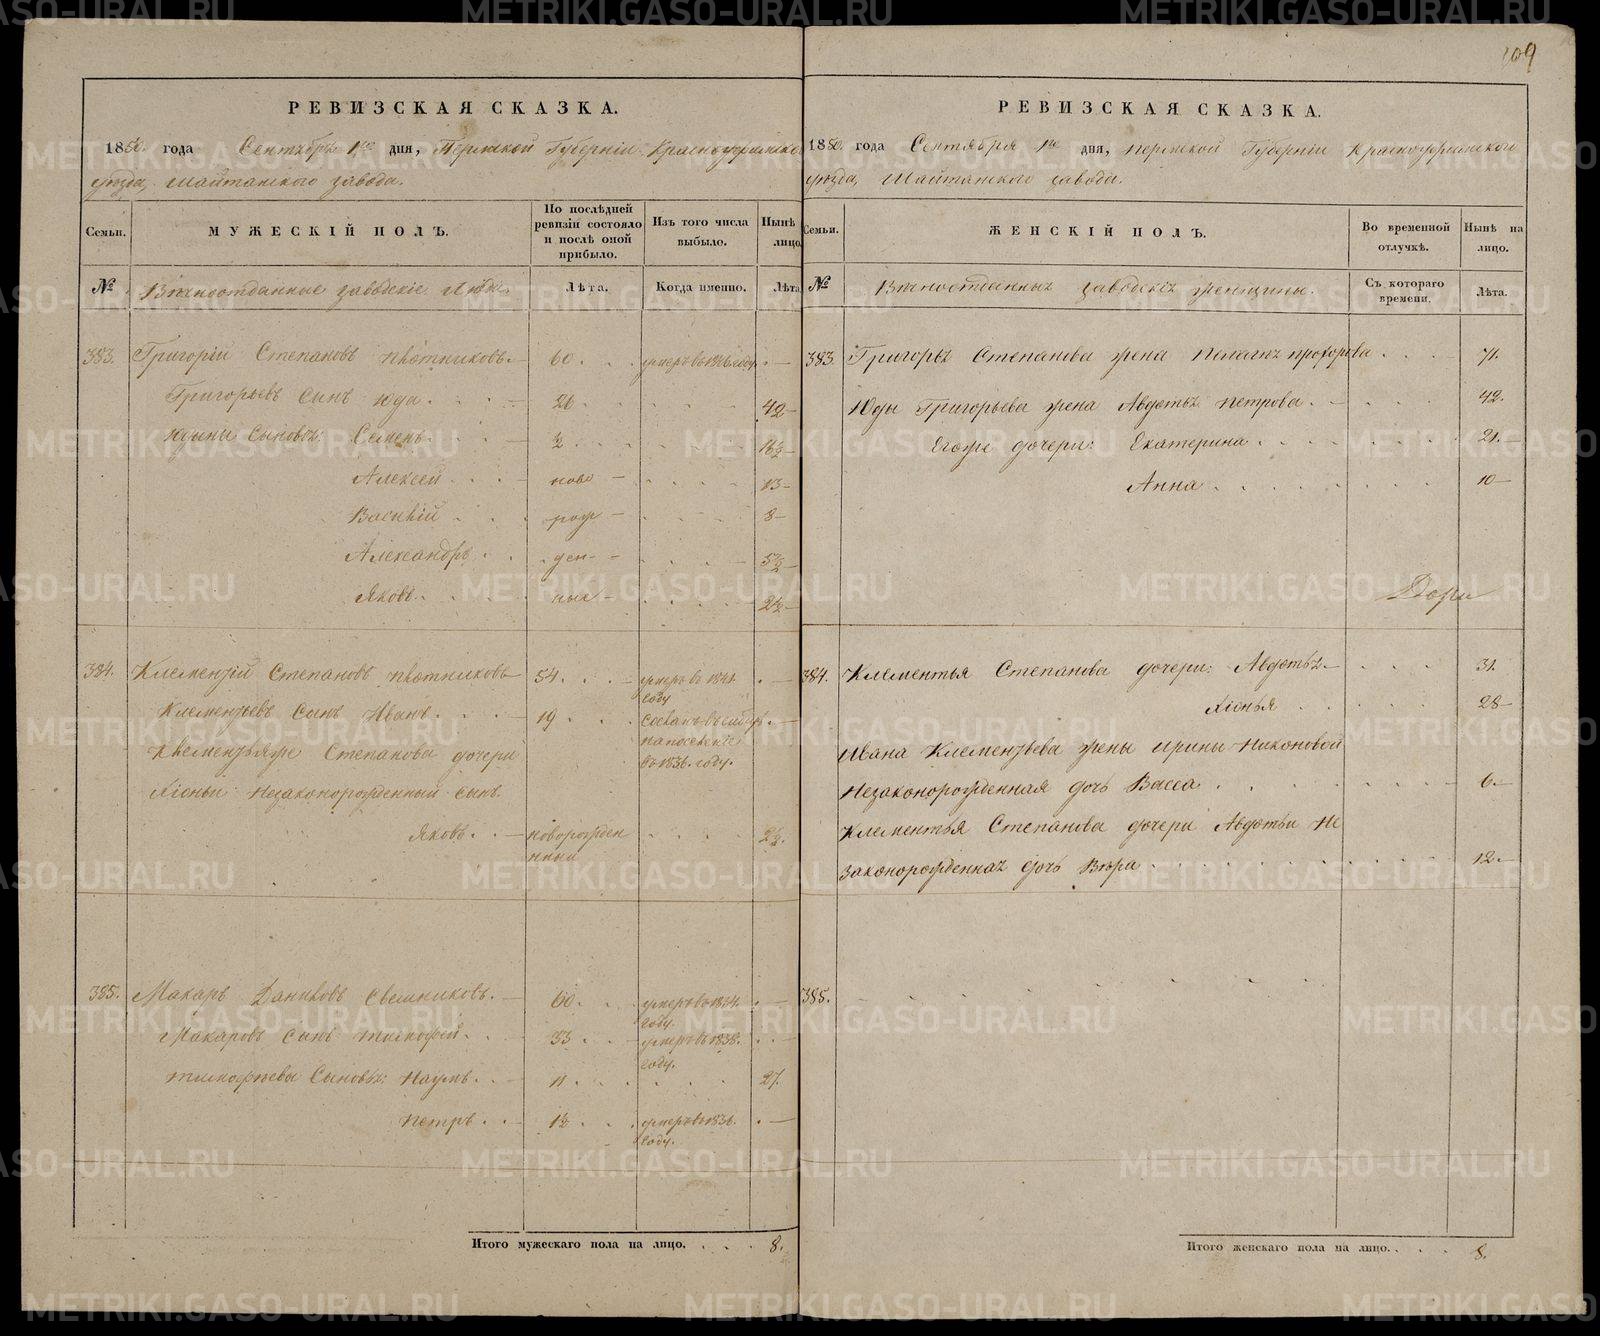 109
РЕВИЗСКАЯ СКАЗКА.
1850. года Сентября 1го дня, Пермской Губерніи Красноуфимскаго
уѣзда, Шайтанскаго завода.
Семьи.
МУЖЕСКІЙ ПОЛЪ.
По послѣдней ревизіи состояло и послѣ оной прибыло.
Изъ того числа выбыло.
Нынѣ лицо.
№ Вѣчноотданные заводскіе Люди. Лѣта. Когда именно. Лѣта
383. Григорій Степановъ Плотниковъ. 60. умеръ въ 1846 году.
Григорьевъ Сынъ Юда. 26 42
Юдины Сыновья: Семенъ. 2 18½
Алексей ново 13
Василій рож 8
Александръ ден 5½
Яковъ. ные 2½
384. Клементій Степановъ Плотниковъ 54. умеръ въ 1841. году
Клементьевъ Сынъ Иванъ. 19 Сосланъ въ Сибирь на поселеніе въ 1836. году.
Клементья же Степанова дочери
Хіоньи Незаконорожденный сынъ
Яковъ. новорожден нный 2½.
385. Макаръ Даниловъ Свешниковъ. 60. умеръ въ 1844. году.
Макаровъ Сынъ Тимофей. 33 умеръ въ 1838. году.
Тимофеевы Сыновья: Наумъ. 11 27.
Петръ. 1½ умеръ въ 1836. году.
Итого мужескаго пола на лицо. 8.
РЕВИЗСКАЯ СКАЗКА.
1850. года Сентября 1го дня, Пермской Губерніи Красноуфимскаго
уѣзда, Шайтанскаго завода.
Семьи.
ЖЕНСКІЙ ПОЛЪ.
Во временной отлучкѣ.
Нынѣ на лицо.
№ Вѣчноотданныя заводскія женщины. Съ котораго времени. Лѣта.
383. Григорья Степанова жена Пелагея Прохорова 71.
Юды Григорьева жена Авдотья Петрова. 42.
Егоже дочери: Екатерина 21.
Анна 10
384. Клементья Степанова дочери: Авдотья 31.
Хіонья 28
Ивана Клементьева жены Ирины Никоновой
Незаконорожденная дочь Васса 6
Клементья Степанова дочери Авдотьи Не
законорожденная дочь Вѣра 12.
385.
Итого женскаго пола на лицо. 8.
METRIKI.GASO-URAL.RU